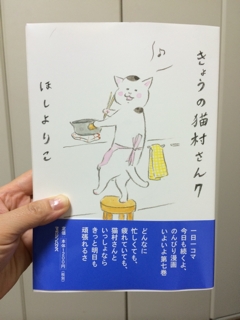 きょうの猫村さん 7
ほしよりこ
一日一コマ
今日も続くよ、
のんびり漫画
いよいよ第七巻
どんなに
忙しくても、
疲れていても、
猫村さんと
いっしょなら
きっと明日も
頑張れるさ